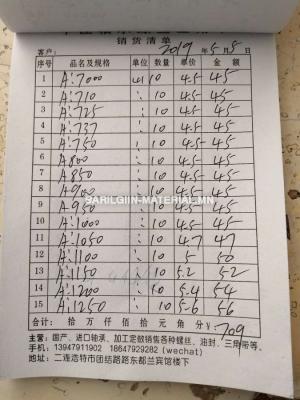 销货清单
客户： 2019年5月5日
序号 品名及规格 单位 数量 单价 金额
1 A:7000 10 4.5 45
2 A:710 : 10 4.5 45
3 A:725 : 10 4.5 45
4 A:737 : 10 4.5 45
5 A:750 : 10 4.5 45
6 A:800 : 10 4.5 45
7 A:850 : 10 4.5 45
8 A:900 : 10 4.5 45
BARILGIIN-MATERIAL.MN
9 A:950 : 10 4.5 45
10 A:1000 : 10 4.5 45
11 A:1050 : 10 4.7 47
12 A:1100 : 10 5 50
13 A:1150 : 10 5.2 52
14 A:1200 : 10 5.4 54
15 A:1250 10 5.6 56
合计： 拾 万 仟 佰 拾 元 角 分 ￥: 709
主营：国产、进口轴承、加工定做销售各种螺丝、油封、三角带等。
手机：13947911902 18647929282 (wechat)
地址：二连浩特市团结路路东都兰宾馆楼下